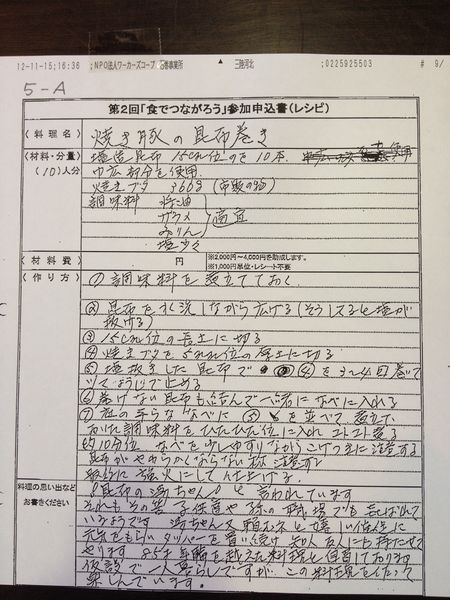 12-11-15;16:36 ;NPO法人ワーカーズコープ 事業所 三陸河北 ;0225925503 # 9/
5-A
第2回「食でつながろう」参加申込書(レシピ)
(料理名) 焼き豚の昆布巻き
(材料・分量) 塩造昆布 15cm位のを10本
(10)人分 巾広部分を使用
焼きブタ 366g (市販の物)
調味料 醤油
ザラメ 適宜
みりん
塩少々
(材料費) 円 ※2,000円~4,000円を助成します。
※1,000円単位・レシート不要
(作り方) ①調味料を煮立てておく。
②昆布を水洗しながら広げる(そうすると塩が
抜ける)
③15cm位の長さに切る
④焼きブタを5mm位の厚さに切る
⑤塩抜きした昆布で ④を3~4回巻いて
つまようじで止める
⑥巻けない昆布も結んで一緒になべに入れる
⑦ を並べて煮立て
おいた調味料をひたひた位に入れコトコト煮る
約10分位 なべを少しゆすりながらこげつきに注意する
昆布がやわらかくならない様注意する
最後に強火にして仕上げる
料理の思い出など
お書きください
「昆布の ちゃん」と言われています
それもその筈 子供達や孫の職場でも喜ばれて
いるようです
元気をもらい タッパーを買い続け 知人 友人にも持たせて
やります 85才
仮設で一人暮らしですが この料理を作って
楽しんでいます。